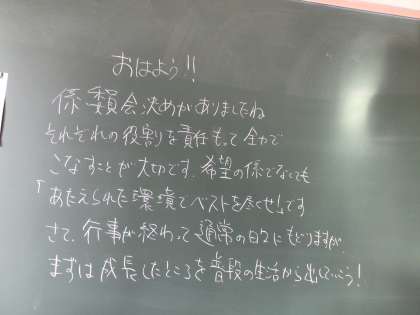 おはよう!!
係委員会決めがありましたね
それぞれの役割を責任もって全力で
こなすことが大切です。希望の係でなくても
「あたえられた環境でベストを尽くせ」です
さて、行事が終わって通常の日々にもどりますが、
まずは成長したところを普段の生活から出していこう!